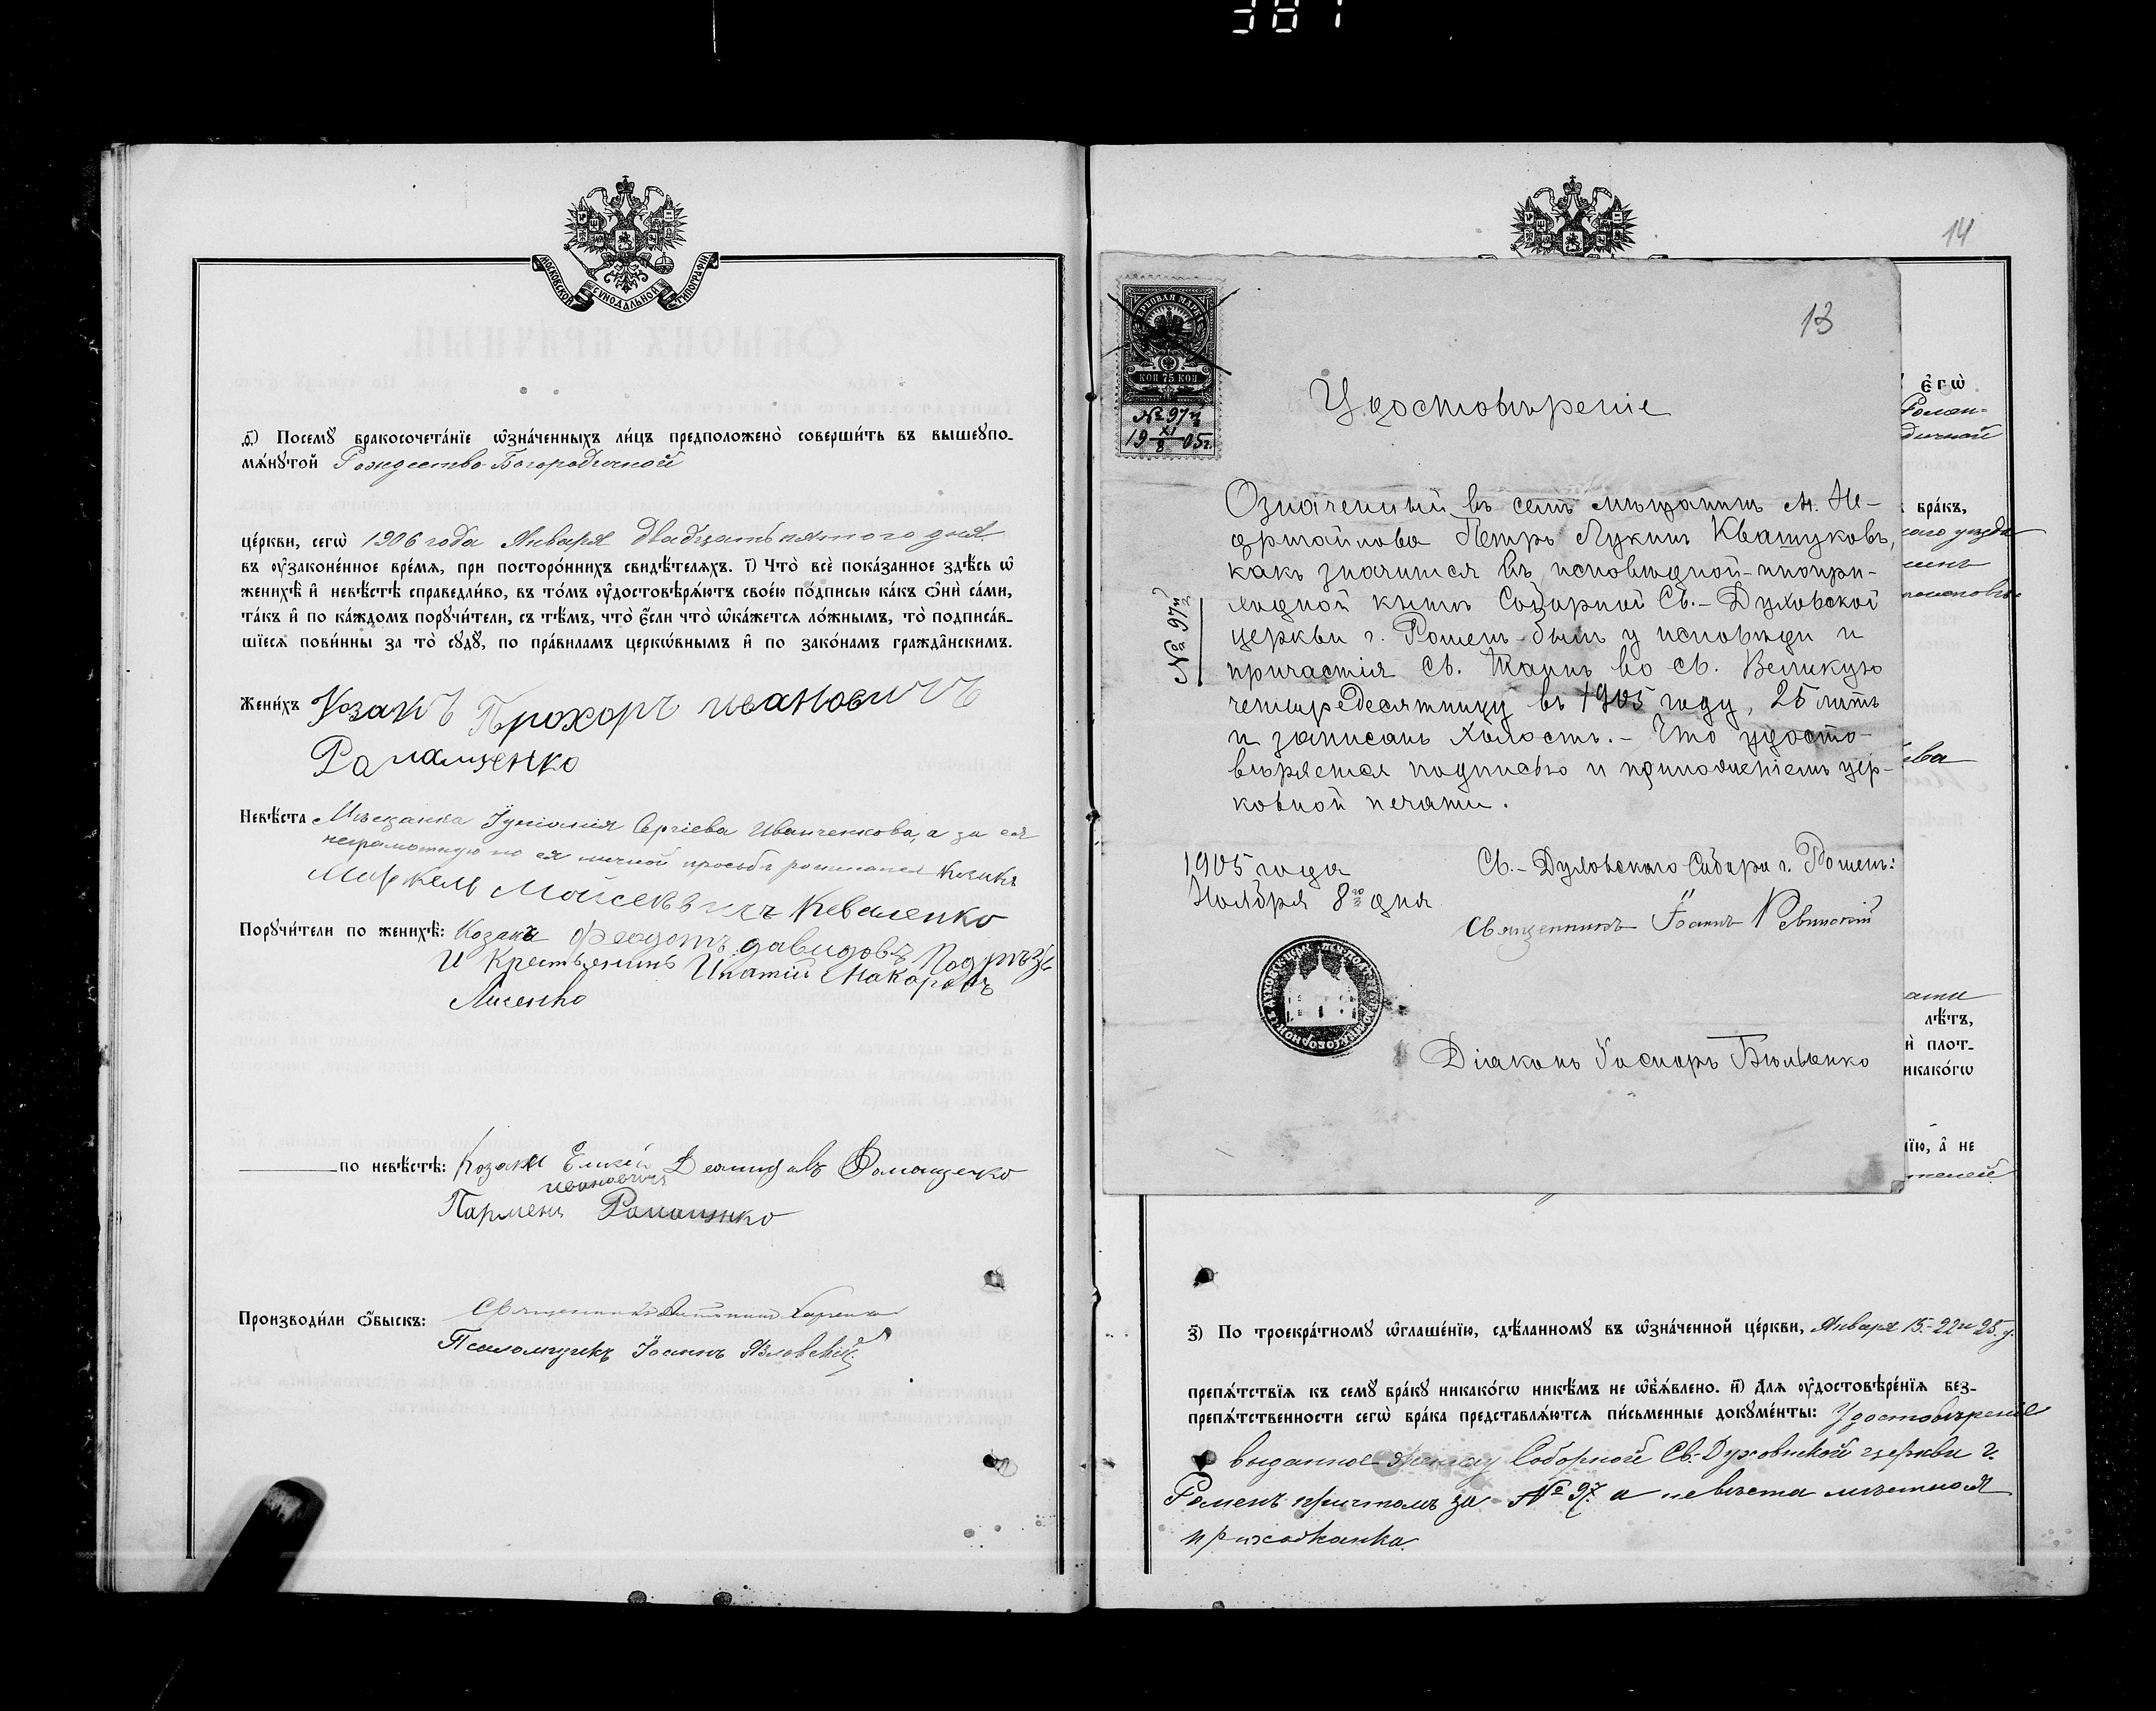 387
МОСКОВСКОЙ СѴНОДАЛЬНОЙ ТИПОГРАФІИ
ѳ҃) Посемꙋ̀ бракосочета́нїе ѡ҆зна́ченныхъ ли́цъ предположено̀ соверши́ть въ вышеꙋпо-
мѧ́нꙋтой Рождество-Богородичной
це́ркви, сегѡ̀ 1906 года Января двадцать пятого дня
въ ᲂу҆зако́не́нное вре́мѧ, при посторо́ннихъ свидѣ́телѧхъ. і҃) Что̀ всѐ пока́занное здѣ́сь ѡ҆
женихѣ̀ и҆ невѣ́стѣ справедли́во, въ то́мъ ᲂу҆достовѣрѧ́ютъ свое́ю по́дписью ка́къ ѻ҆нѝ са́ми,
та́къ и҆ по ка́ждомъ порꙋчи́тели, съ тѣ́мъ, что̀ є҆́сли что̀ ѡ҆ка́жетсѧ ло́жнымъ, то̀ подписа́в-
шїесѧ пови́нны за то̀ сꙋдꙋ̀, по пра́виламъ церкѡ́внымъ и҆ по зако́намъ гражда̑нскимъ.
Жени́хъ Козакъ Прохоръ ивановичъ
Ромащенко
Невѣ́ста Мѣщанка Іуліанія Сергіева Иванченкова, а за ея
неграмотную по ея личной просьбѣ росписался Козакъ
Маркелъ Мойсеевичъ Коваленко
Порꙋчи́тели по женихѣ̀: Козакъ Феодотъ давидовъ
И Крестьянинъ Ипатій Макаровъ
Лисенко
по невѣ́стѣ: Козаки Елисей Демидовъ Ромащенко
ивановичъ
Парменъ Ромащенко
Производи́ли ѻ҆́быскъ: Священникъ
Псаломщикъ Іоаннъ
14
13
ГЕРБОВАЯ МАРКА
КОП 75 КОП
№ 97й
19 XI/8 05г.
Удостовѣреніе
№ 97й
Означенный въ семъ мѣщанинъ м. Не-
дригайлова Петръ Лукинъ Квашуковъ,
какъ значится въ исповѣдной-неопри-
ходной книгѣ Соборной Св.-Духовской
церкви г. Роменъ былъ у исповѣди и
причастія Св. Таинъ во Св. Великую
четыредесятницу въ 1905 году, 25 лѣтъ
и записанъ холостъ.- Что удосто-
вѣряется подписью и приложеніемъ цер-
ковной печати.
1905 года
Ноября 8го дня
Св.-Духовского Собора г. Роменъ:
Священникъ Іоаннъ
Діаконъ
є҆гѡ̀
Роман-
дичной
бра́къ,
каго уѣзда
ева
лѣ́тъ,
и҆ плот-
никако́гѡ
нїю, а҆ не
телей
з҃) По троекра́тномꙋ ѡ҆глаше́нїю, сдѣ́ланномꙋ въ ѡ҆зна́ченной це́ркви, Января 15.-22 и 25 д.
препѧ́тствїѧ къ семꙋ̀ бра́кꙋ никако́гѡ никѣ́мъ не ѡ҆б̾ѧ́влено. и҃) Длѧ ᲂу҆достовѣре́нїѧ без-
препѧ́тственности сегѡ̀ бра́ка представлѧ́ютсѧ пи́сьменные докꙋме́нты: Удостовѣреніе
выданное жениху Соборной Св.-Духовской церкви г.
Роменъ причтомъ за № 97. а невѣста мѣстная
прихожанка.